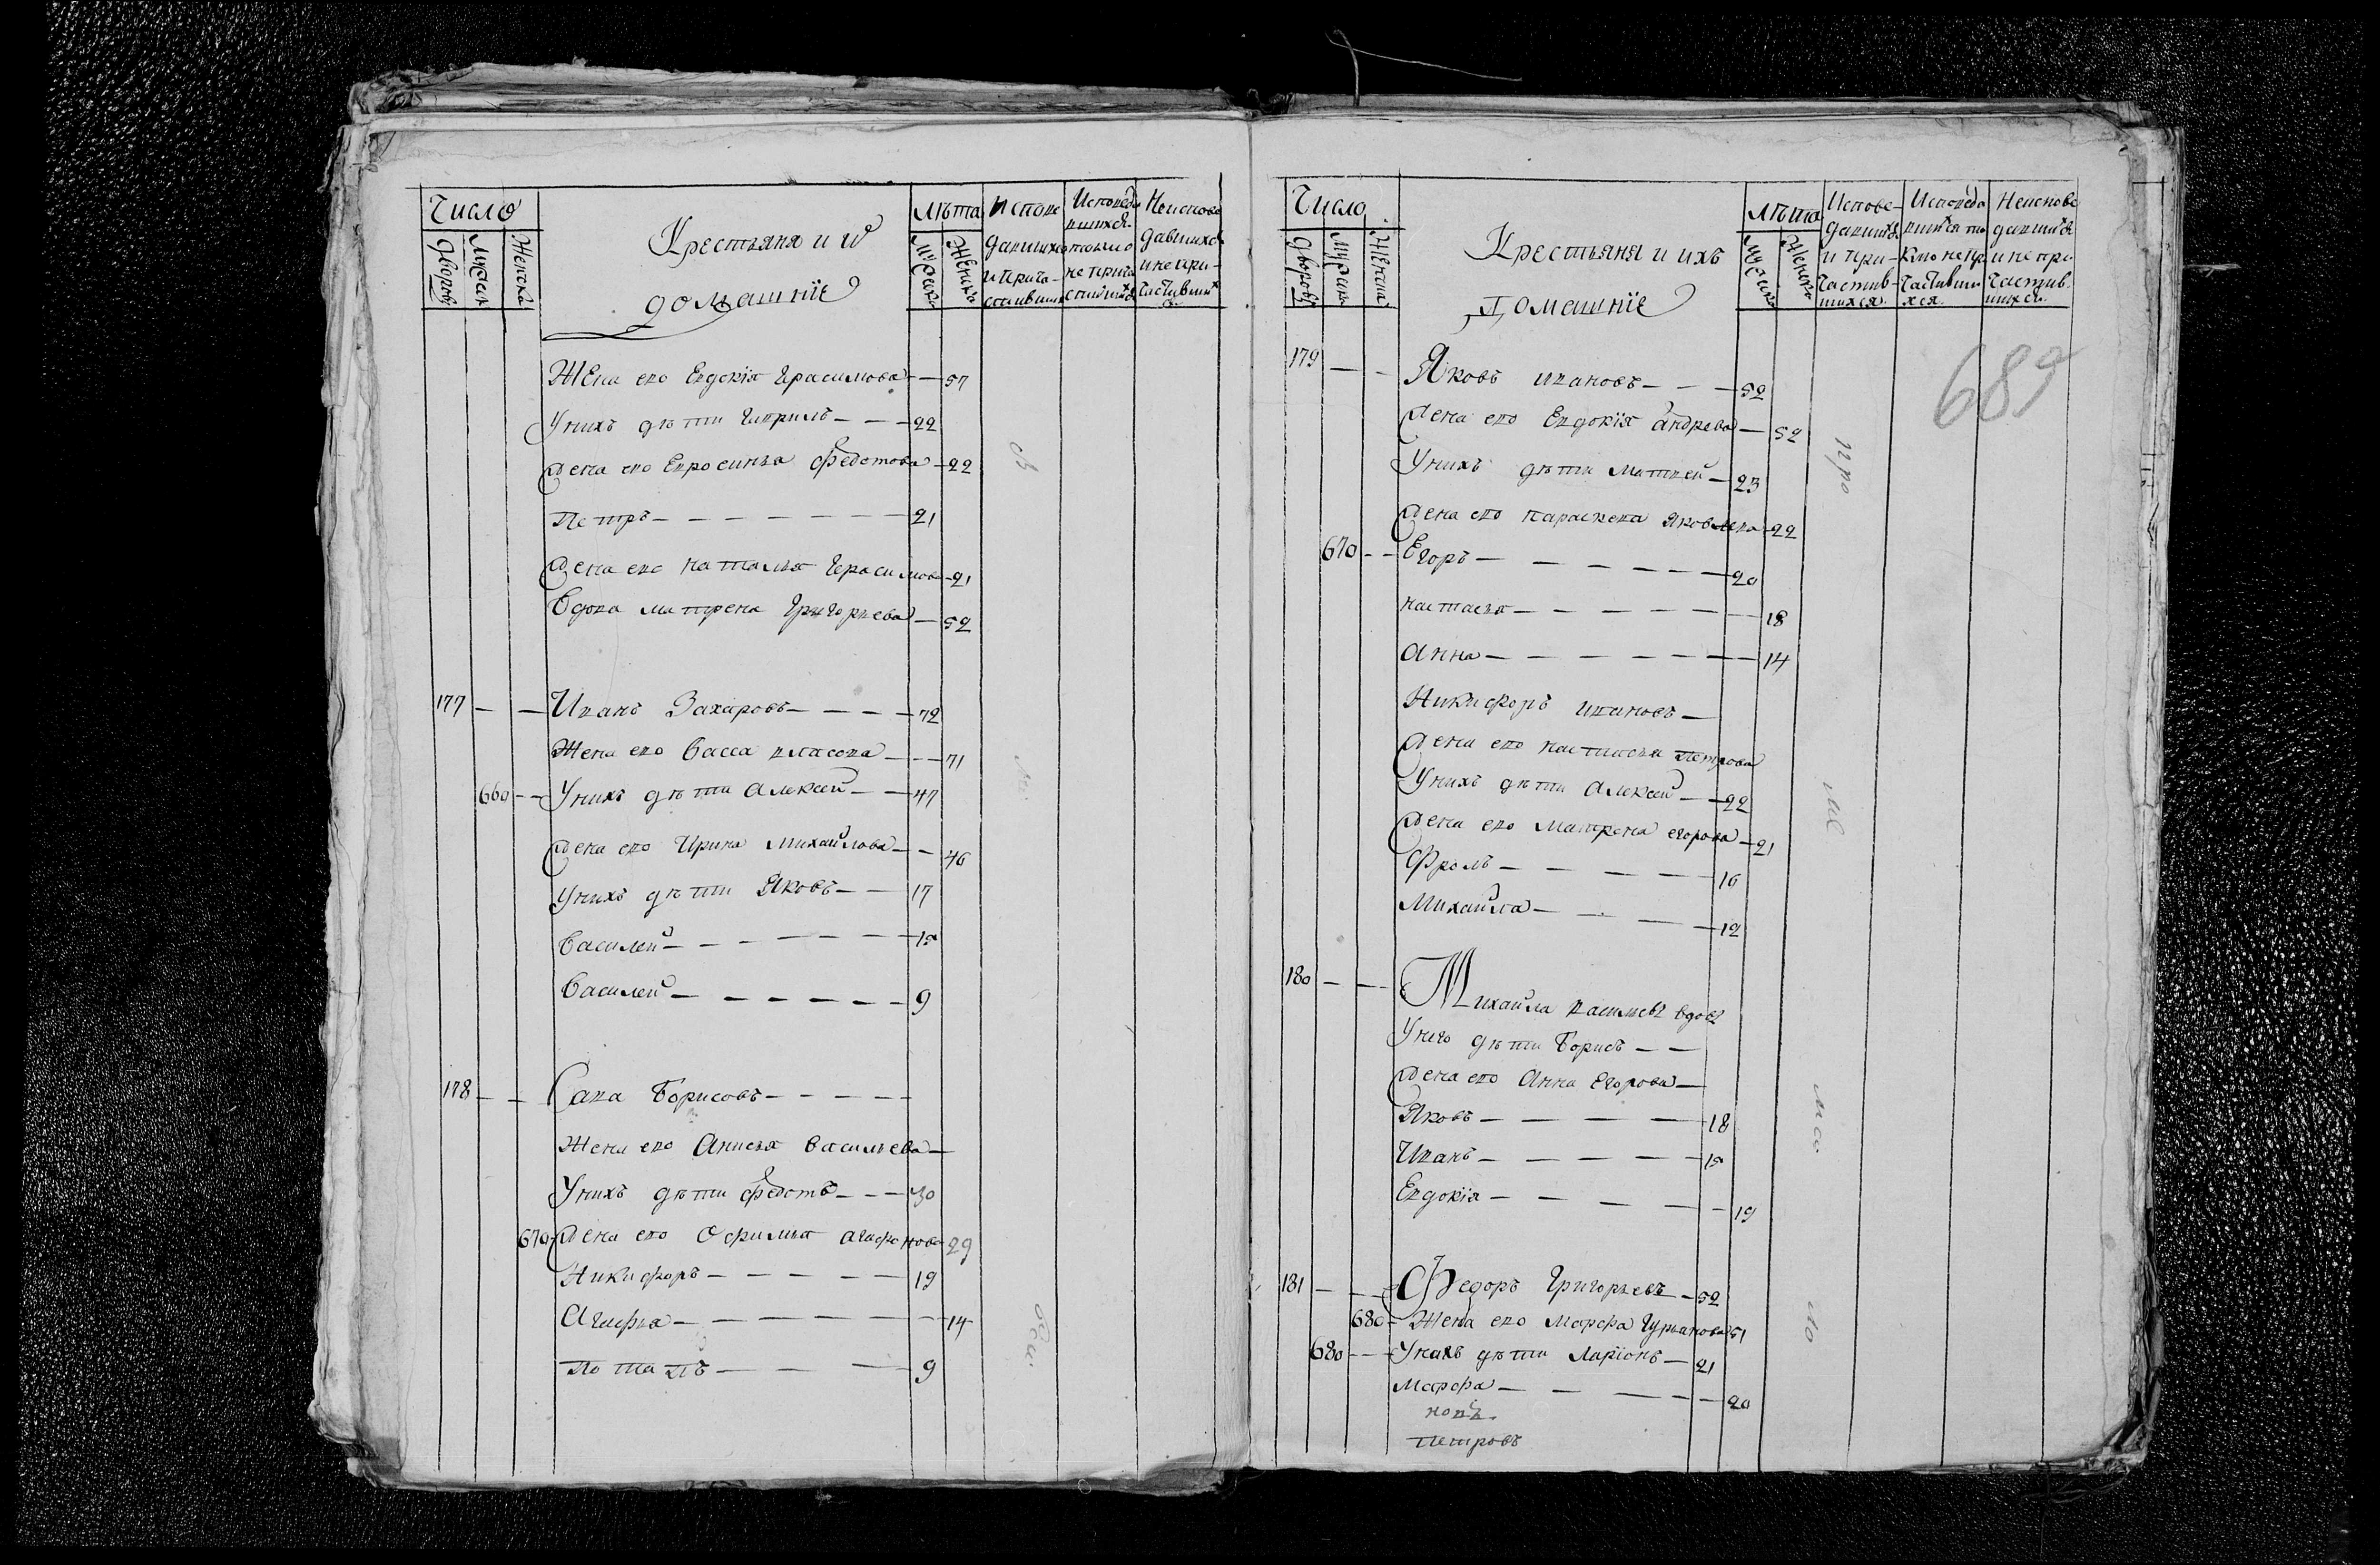 Число
Дворовъ
Мужеск
Женска
Крестьяня и ѡ
домашнїе
Лѣта
Мужск
Женскъ
Испове
давшихс
и прича-
стивши
Исповеда
вшихся
токмо
не прича
стившихся
Неиспове
давшихся
и не при-
частивших
ся
Жена ево Евдокїя Герасимова — 57
У нихъ дѣти Гаврилъ — — — 22
Жена ево Евросинья Федотова — 22
Петръ — — — — — — — 21
Жена ево Наталья Герасимова — 21
Вдова Матрена Григорьева — 52
177 — — Иванъ Захаровъ — — — — 72
Жена ево Васса Власова — — — 71
660 — — У нихъ дѣти Алексей — — 47
Жена ево Ирина Михайлова — — 46
У нихъ дѣти Яковъ — — 17
Василей — — — — — — 15
Василей — — — — — — 9
178 — — Сава Борисовъ — — — — —
Жена ево Анисья Васильева —
У нихъ дѣти Федотъ — — — 30
670 Жена ево Офимья Агафонова 29
Никифоръ — — — — — 19
Агафья — — — — — — — 14
Потапъ — — — — 9
Число
Дворовъ
Мужск
Женска
Крестьяня и ихъ
Домашнїе
Лѣта
Мужск
Женскъ
Испове-
давшихся
и при-
частив-
шихся.
Исповеда
вшихся то
кмо не пр
частивши
хся.
Неиспове
давшихся
и не при
частив.
шихся.
689
179 — — Яковъ Ивановъ — — — 52
Жена ево Евдокїя Андрева — 52
У нихъ дѣти Матвей — 23
Жена ево Параскева Яковлева — 22
670 — — Егоръ — — — — — — 20
Настасья — — — — — — 18
Анна — — — — — — — 14
Никифоръ Ивановъ —
Жена ево Настасья Петрова
У нихъ дѣти Алексей — — 22
Жена ево Матрена Егорова — 21
Фролъ — — — — — 16
Михайла — — — — 12
180 — — Михайла Васильевъ вдовъ
У него дѣти Борисъ — —
Жена ево Анна Егорова —
Яковъ — — — — — 18
Иванъ — — — — — — 15
Евдокїя — — — — — 19
181 — — Федоръ Григорьевъ — 52
680 — Жена ево Марфа Гурьянова 51
680 — — У нихъ дѣти Ларїонъ — 21
Марфа — — — — — 20
попъ
Петровъ